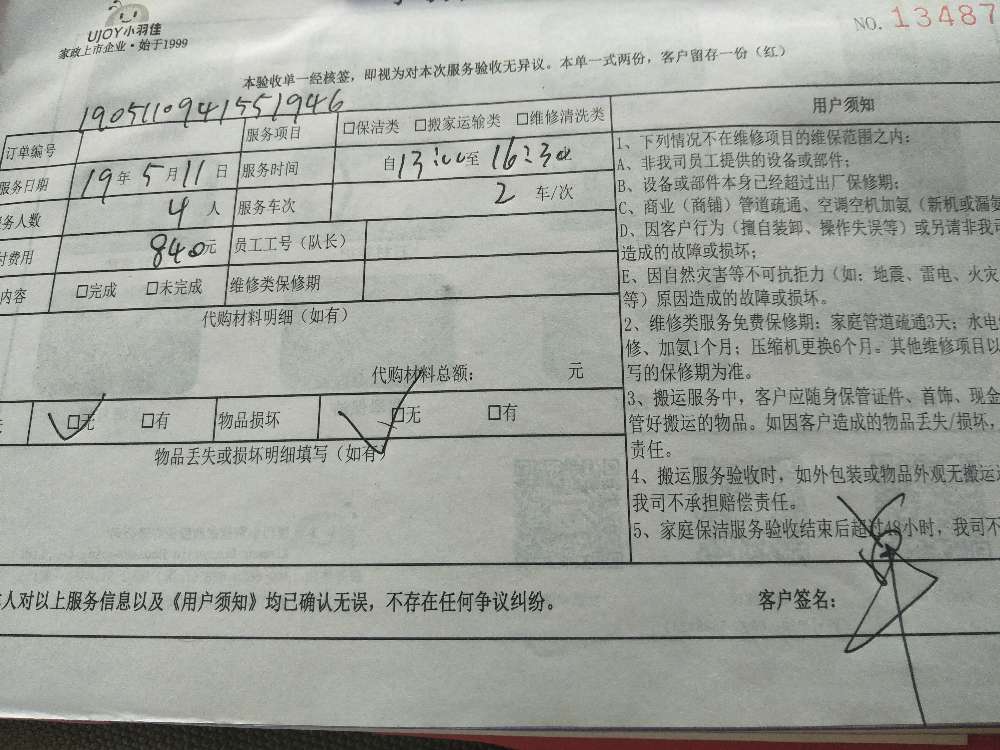 UJOY小羽佳
家政上市企业·始于1999
NO. 13487
本验收单一经核签，即视为对本次服务验收无异议。本单一式两份，客户留存一份（红）
订单编号 1905110941551946 服务项目 □保洁类 □搬家运输类 □维修清洗类
服务日期 19年5月11日 服务时间 自13:00至16:30
务人数 4人 服务车次 2车/次
付费用 840元 员工工号（队长）
内容 □完成 □未完成 维修类保修期
代购材料明细（如有）
代购材料总额： 元
□无 □有 物品损坏 □无 □有
物品丢失或损坏明细填写（如有）
用户须知
1、下列情况不在维修项目的维保范围之内：
A、非我司员工提供的设备或部件；
B、设备或部件本身已经超过出厂保修期；
C、商业（商铺）管道疏通、空调空机加氨（新机或漏氨
D、因客户行为（擅自装卸、操作失误等）或另请非我司
造成的故障或损坏；
E、因自然灾害等不可抗拒力（如：地震、雷电、火灾
等）原因造成的故障或损坏。
2、维修类服务免费保修期：家庭管道疏通3天；水电
修、加氨1个月；压缩机更换6个月。其他维修项目以
写的保修期为准。
3、搬运服务中，客户应随身保管证件、首饰、现金
管好搬运的物品。如因客户造成的物品丢失/损坏，
责任。
4、搬运服务验收时，如外包装或物品外观无搬运
我司不承担赔偿责任。
5、家庭保洁服务验收结束后超过48小时，我司不
人对以上服务信息以及《用户须知》均已确认无误，不存在任何争议纠纷。
客户签名：